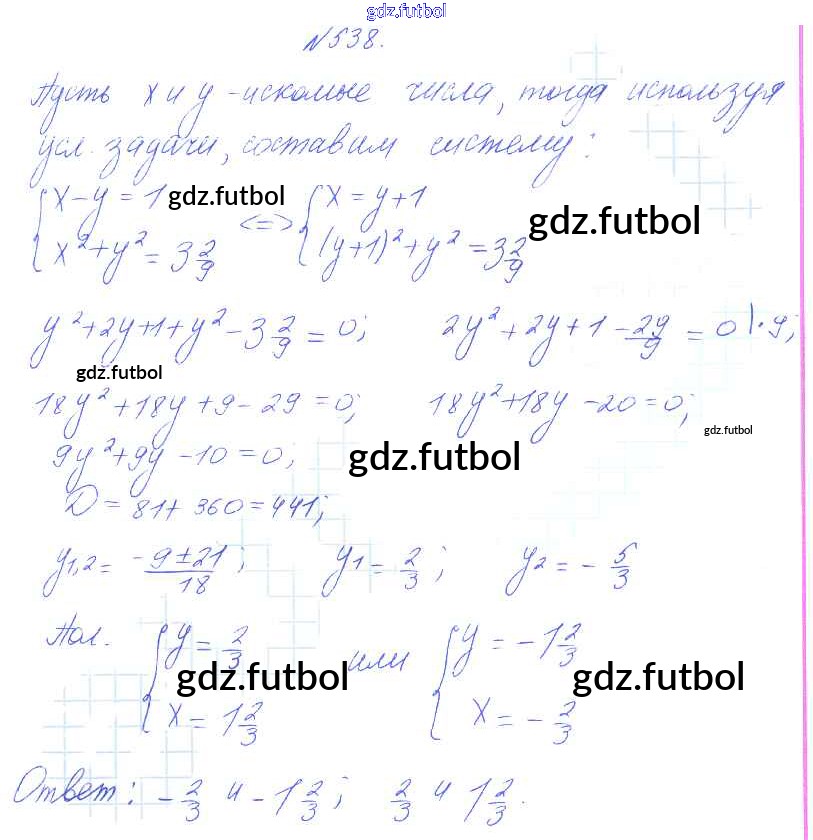 gdz.futbol
N538.
Пусть x и y - искомые числа, тогда используя
усл. задачи, составим систему:
{ x - y = 1 gdz.futbol <=> { x = y + 1 gdz.futbol
{ x² + y² = 3 2/9 { (y+1)² + y² = 3 2/9
y² + 2y + 1 + y² - 3 2/9 = 0; 2y² + 2y + 1 - 29/9 = 0 | · 9;
gdz.futbol
18y² + 18y + 9 - 29 = 0; 18y² + 18y - 20 = 0;
gdz.futbol
9y² + 9y - 10 = 0; gdz.futbol
D = 81 + 360 = 441;
y1,2 = (-9 ± 21)/18; y1 = 2/3; y2 = - 5/3
Пол. { y = 2/3 или { y = -1 2/3
gdz.futbol gdz.futbol
{ x = 1 2/3 { x = - 2/3
Ответ: - 2/3 и -1 2/3; 2/3 и 1 2/3.